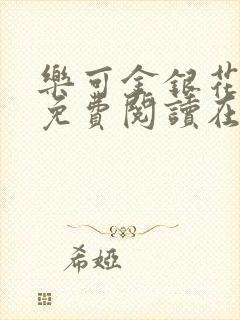 樂可金銀花
免費閱讀在
希婭